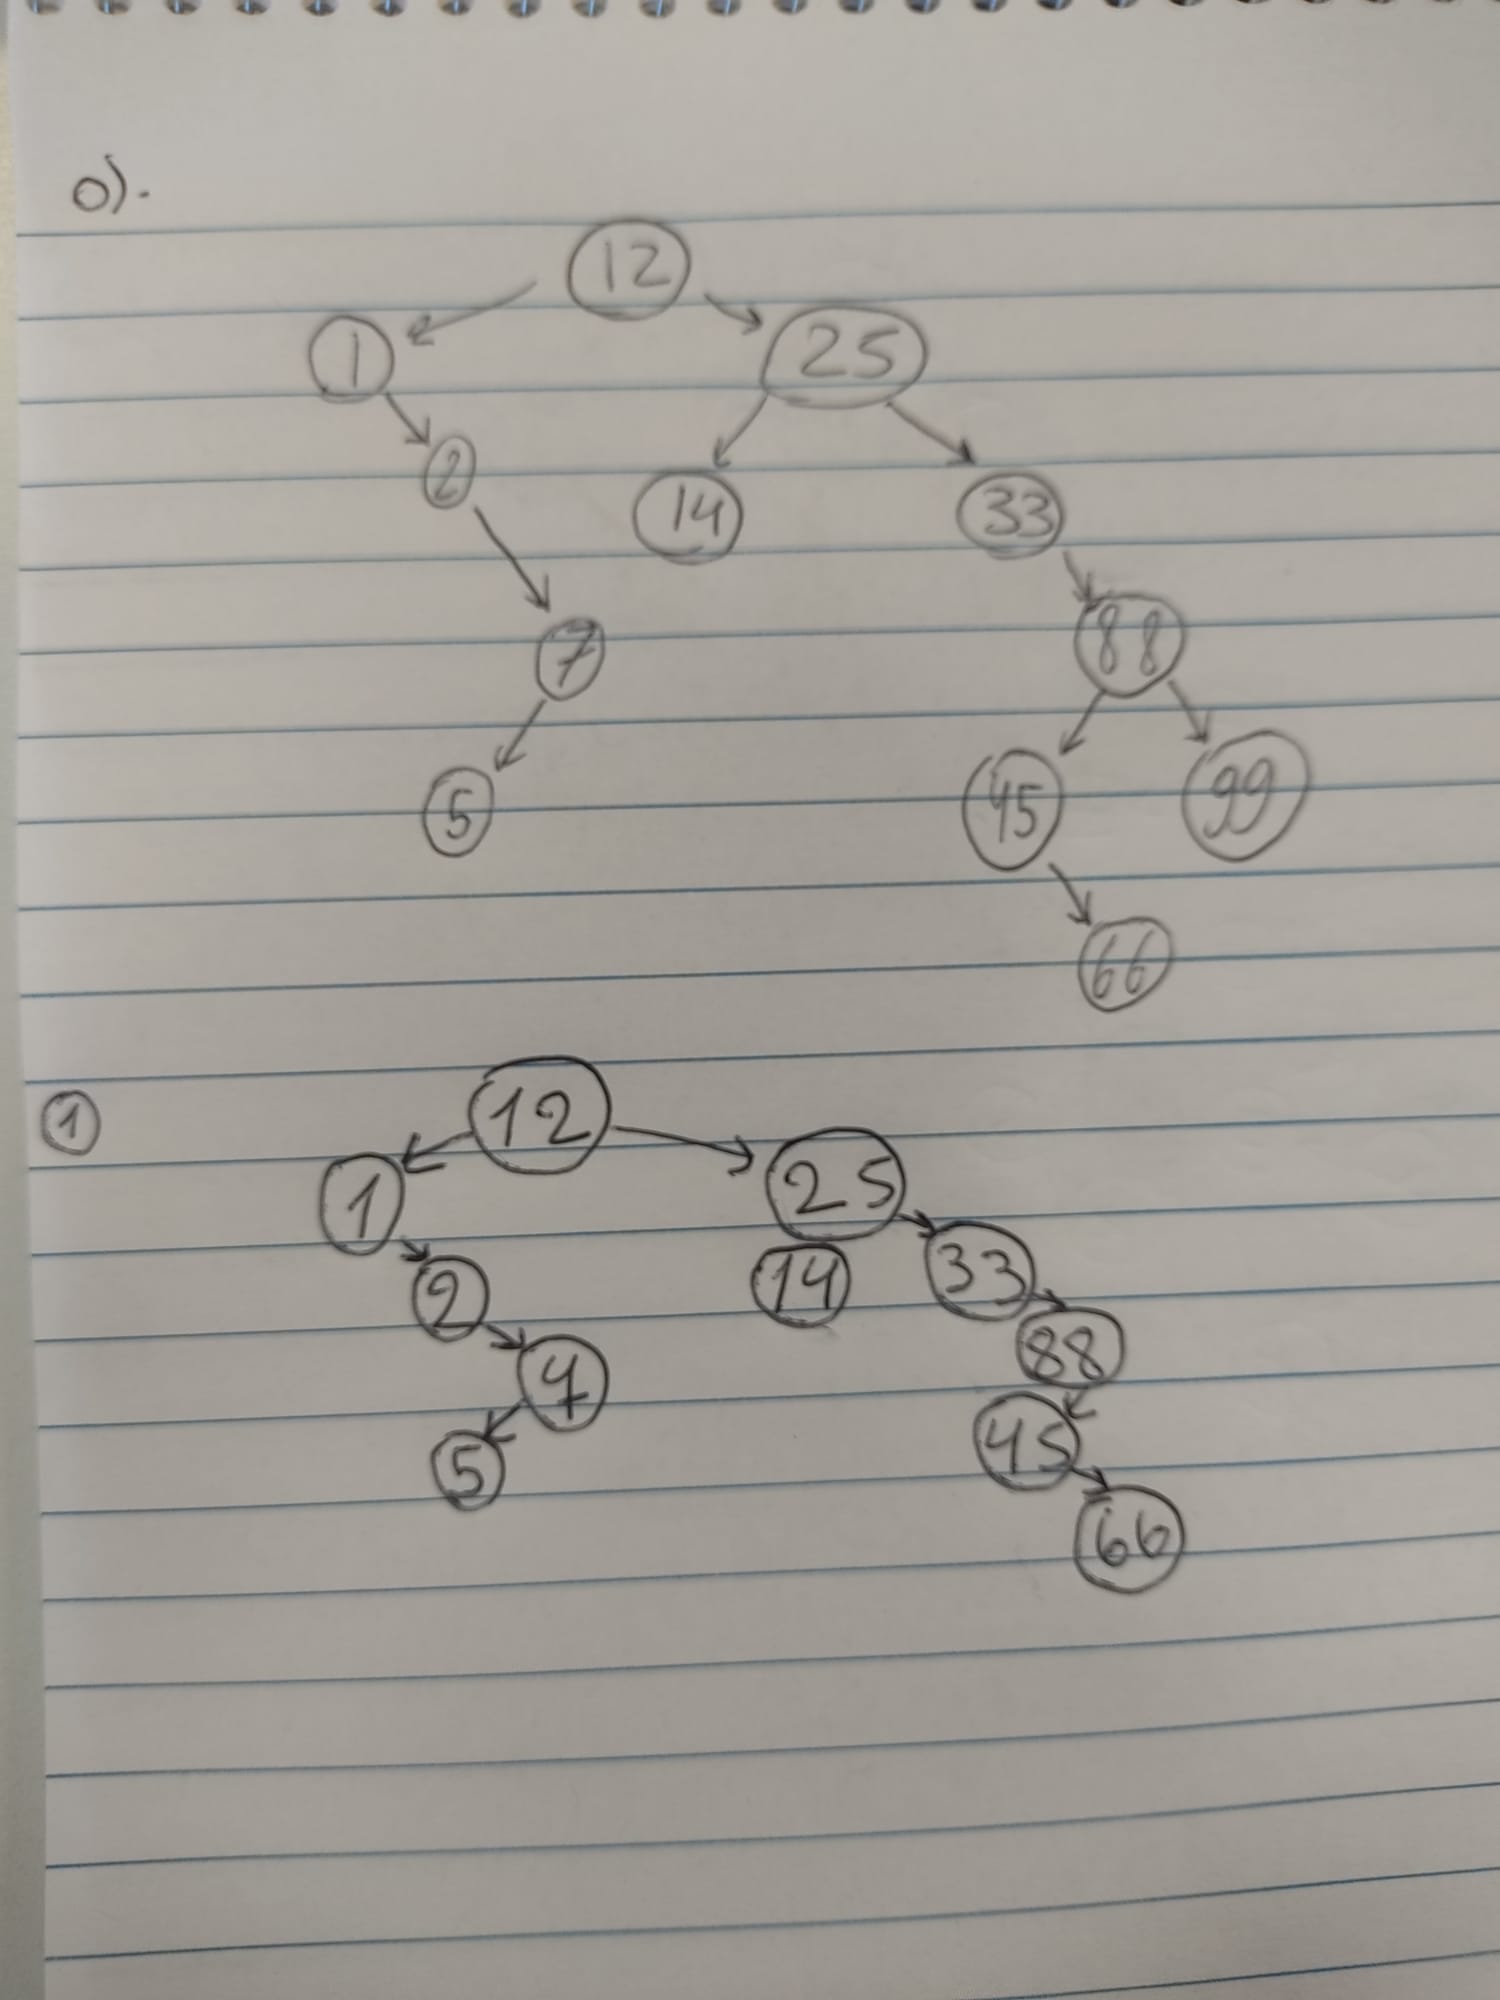 0).
12
1 25
2 14 33
7 88
5 45 99
66
1 12
1 25
2 14 33
7 88
5 45
66